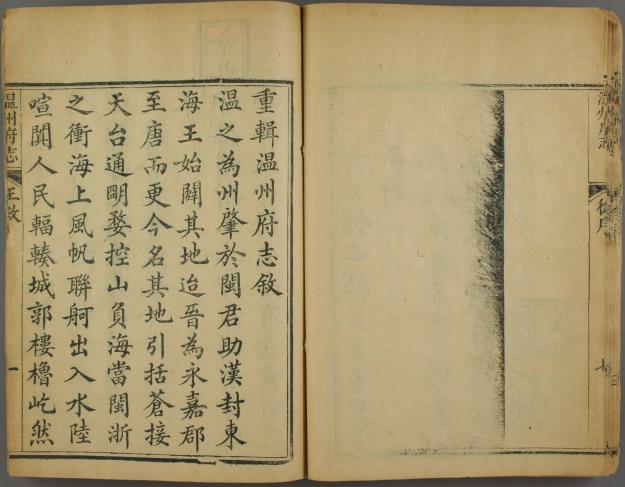 温州府志
後序
重輯温州府志敘
温之為州肇於閩君助漢封東
海王始闢其地迨晉為永嘉郡
至唐而更今名其地引括蒼接
天台通明婺控山負海當閩浙
之衝海上風帆聯舸出入水陸
喧闐人民輻輳城郭樓櫓屹然
温州府志
王敘
一